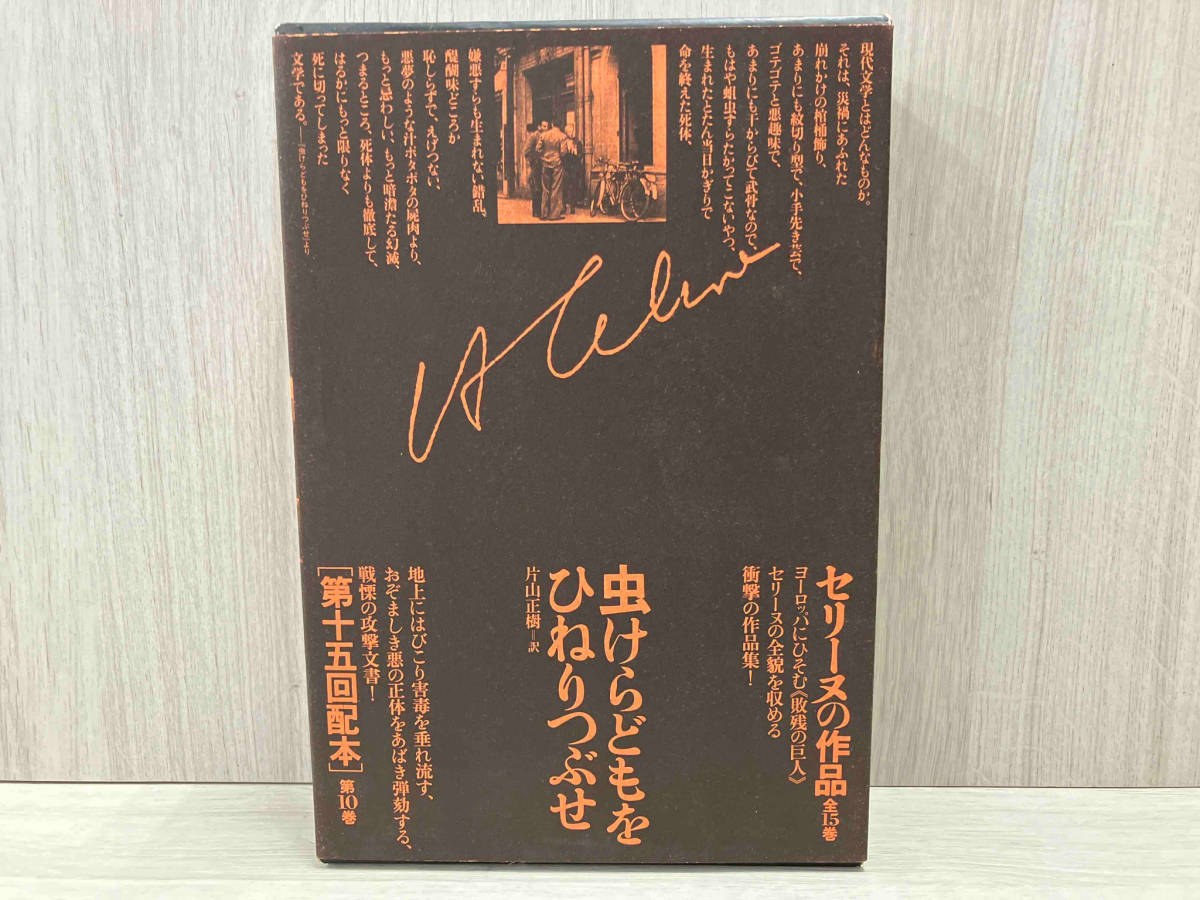 現代文学とはどんなものか。
それは、災禍にあふれた
崩れかけの棺桶飾り、
あまりにも紋切り型で、小手先き芸で、
ゴテゴテと悪趣味で、
あまりにも干からびて武骨なので、
もはや蛆虫すらたかってこないやつ、
生まれたとたん当日かぎりで
命を終えた死体、
嫌悪すらも生まれない錯乱。
醍醐味どころか
恥しらずで、えげつない、
悪夢のような汗ボタボタの屍肉より、
もっと忌わしい、もっと暗澹たる幻滅、
つまるところ、死体よりも徹底して、
はるかにもっと限りなく
死に切ってしまった
文学である。——『虫けらどもをひねりつぶせ』より
セリーヌの作品 全15巻
ヨーロッパにひそむ《敗残の巨人》
セリーヌの全貌を収める
衝撃の作品集!
虫けらどもを
ひねりつぶせ
片山正樹=訳
地上にはびこり害毒を垂れ流す、
おぞましき悪の正体をあばき弾劾する、
戦慄の攻撃文書!
[第十五回配本] 第10巻